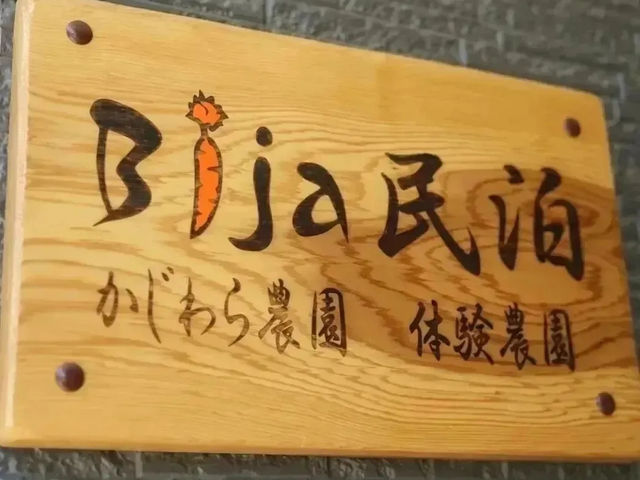 Bija民泊
かじわら農園 体験農園